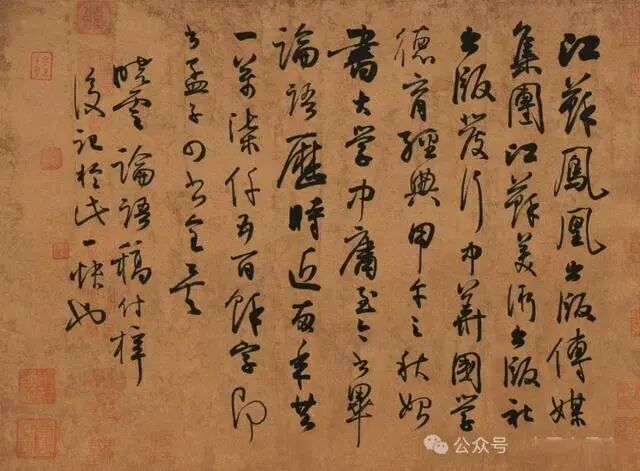 江蘇鳳凰出版傳媒
集團江蘇美術出版社
出版發行中華國學
德育經典甲午之秋始
書大学中庸至今書畢
論語歷時近兩年共
一萬柒仟五百餘字即
書孟子四書全矣
曉雲論語稿付梓
後記於此一快也
公众号